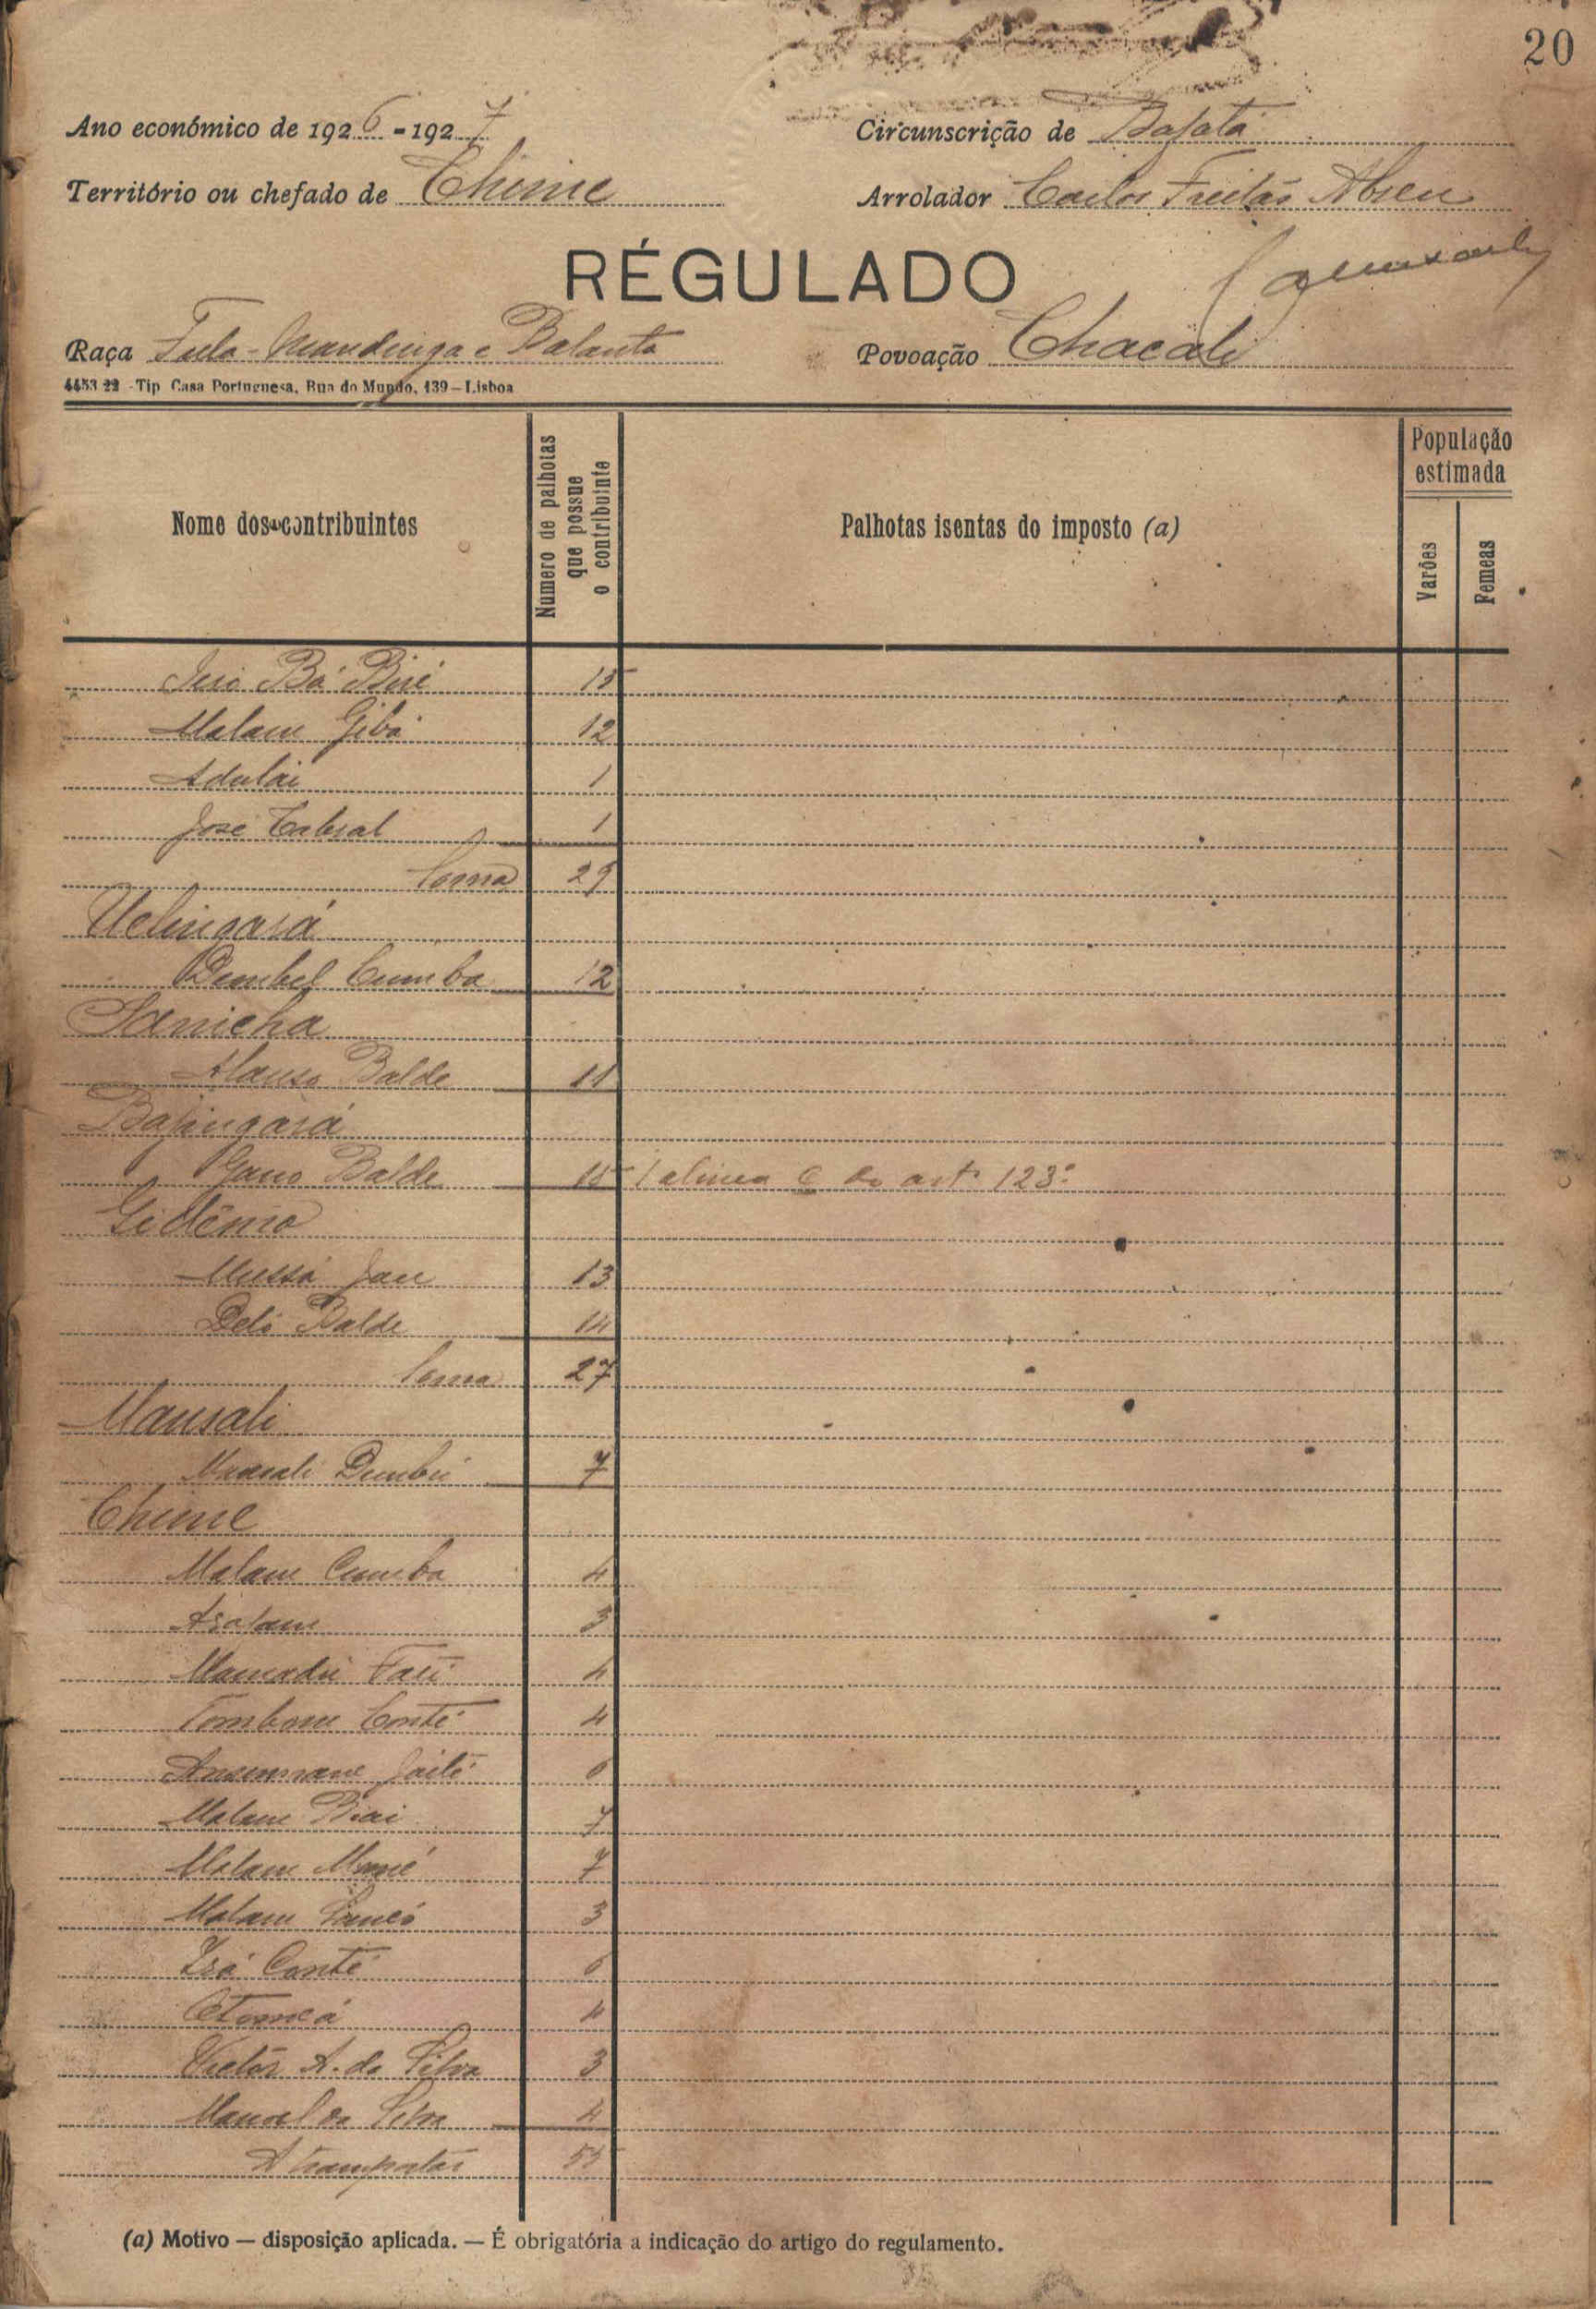 20
Ano económico de 1926-1927
Circunscrição de Bafatá
Território ou chefado de Chime
Arrolador Carlos Freitas Abreu
RÉGULADO
Raça Fula-Mandinga e Balanta
Povoação Chacali
4453 22 - Tip Casa Portuguesa, Rua do Mundo, 139 - Lisboa
Nome dos contribuintes
Numero de palhotas que possue o contribuinte
Palhotas isentas do imposto (a)
População estimada
Varões
Femeas
Bá 15
Malam Gibá 12
Adulai 1
José Cabral 1
Soma 29
Uelingará
Dembel Cumba 12
Sanicha
Balde 11
Gano Balde 15 1 alinea c do art.º 123.º
Mussá Jau 13
Deló Balde 14
Soma 27
Mansali
Mansali Dembú 7
Chime
Malam Cumba 4
3
Mamadú Fati 4
Conté 4
6
Malam Biai 7
Malam Mané 7
Malam Sancó 3
Conté 6
4
Victor A. da Silva 3
Manoel da Silva 4
A transportar 55
(a) Motivo — disposição aplicada. — É obrigatória a indicação do artigo do regulamento.